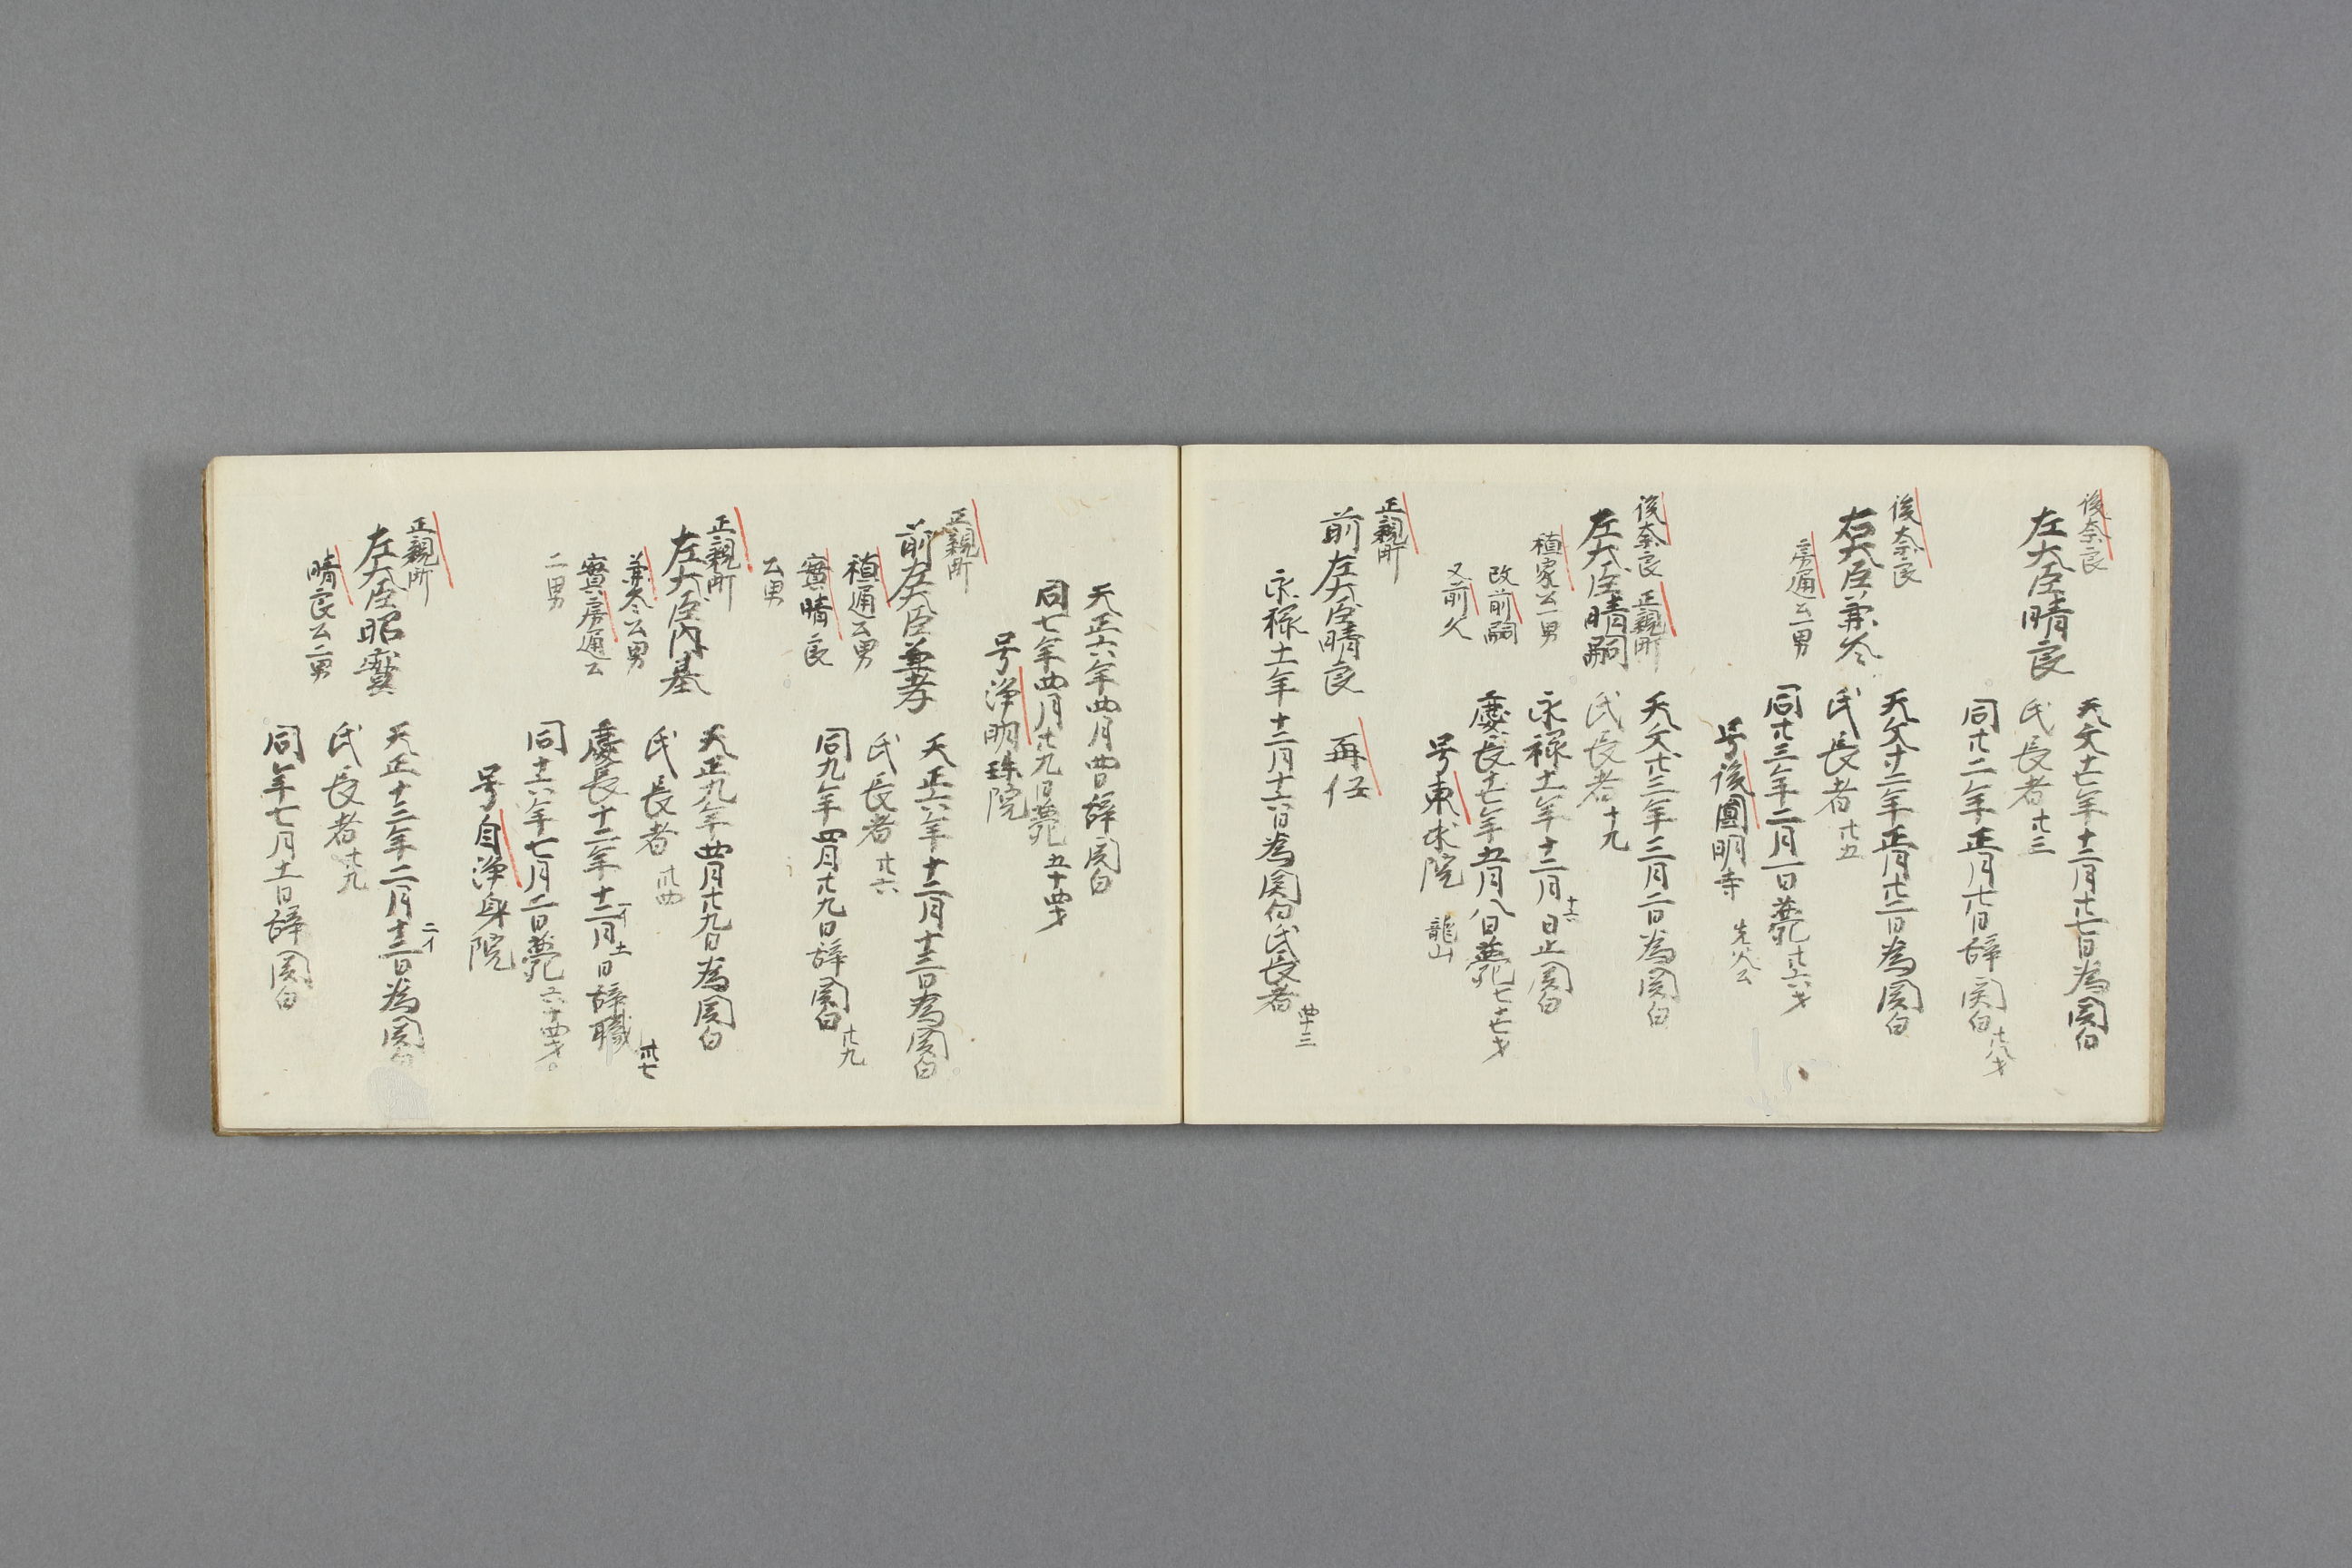 後奈良
左大臣晴良
天文十七年十二月廿七日為関白
氏長者廿三
同廿二年正月廿日辞関白廿八才
後奈良
右大臣兼冬
房通公一男
天文廿二年正月廿二日為関白
氏長者廿五
同廿三年二月一日薨廿六才
号後圓明寺
後奈良 正親町
左大臣晴嗣
植家公一男
改前嗣
又前久
天文廿三年三月二日為関白
氏長者十九
永禄十一年十二月十六日止関白
慶長十七年五月八日薨七十七才
号東求院 龍山
正親町
前左大臣晴良 再任
永禄十一年十二月十六日為関白氏長者四十三
天正六年四月四日辞関白
同七年四月廿九日薨五十四才
号浄明珠院
正親町
前左大臣兼孝
植通公男
實晴良
公男
天正六年十二月十三日為関白
氏長者廿六
同九年四月廿九日辞関白廿九
正親町
左大臣内基
兼冬公男
實房通公
二男
天正九年四月廿九日為関白
氏長者廿四
慶長十二年十二月一イ十一日辞職卅七
同十六年七月二日薨六十四才
号自浄身院
正親町
左大臣昭實
晴良公二男
天正十三年二月十三日二イ為関白
氏長者廿九
同年七月十一日辞関白